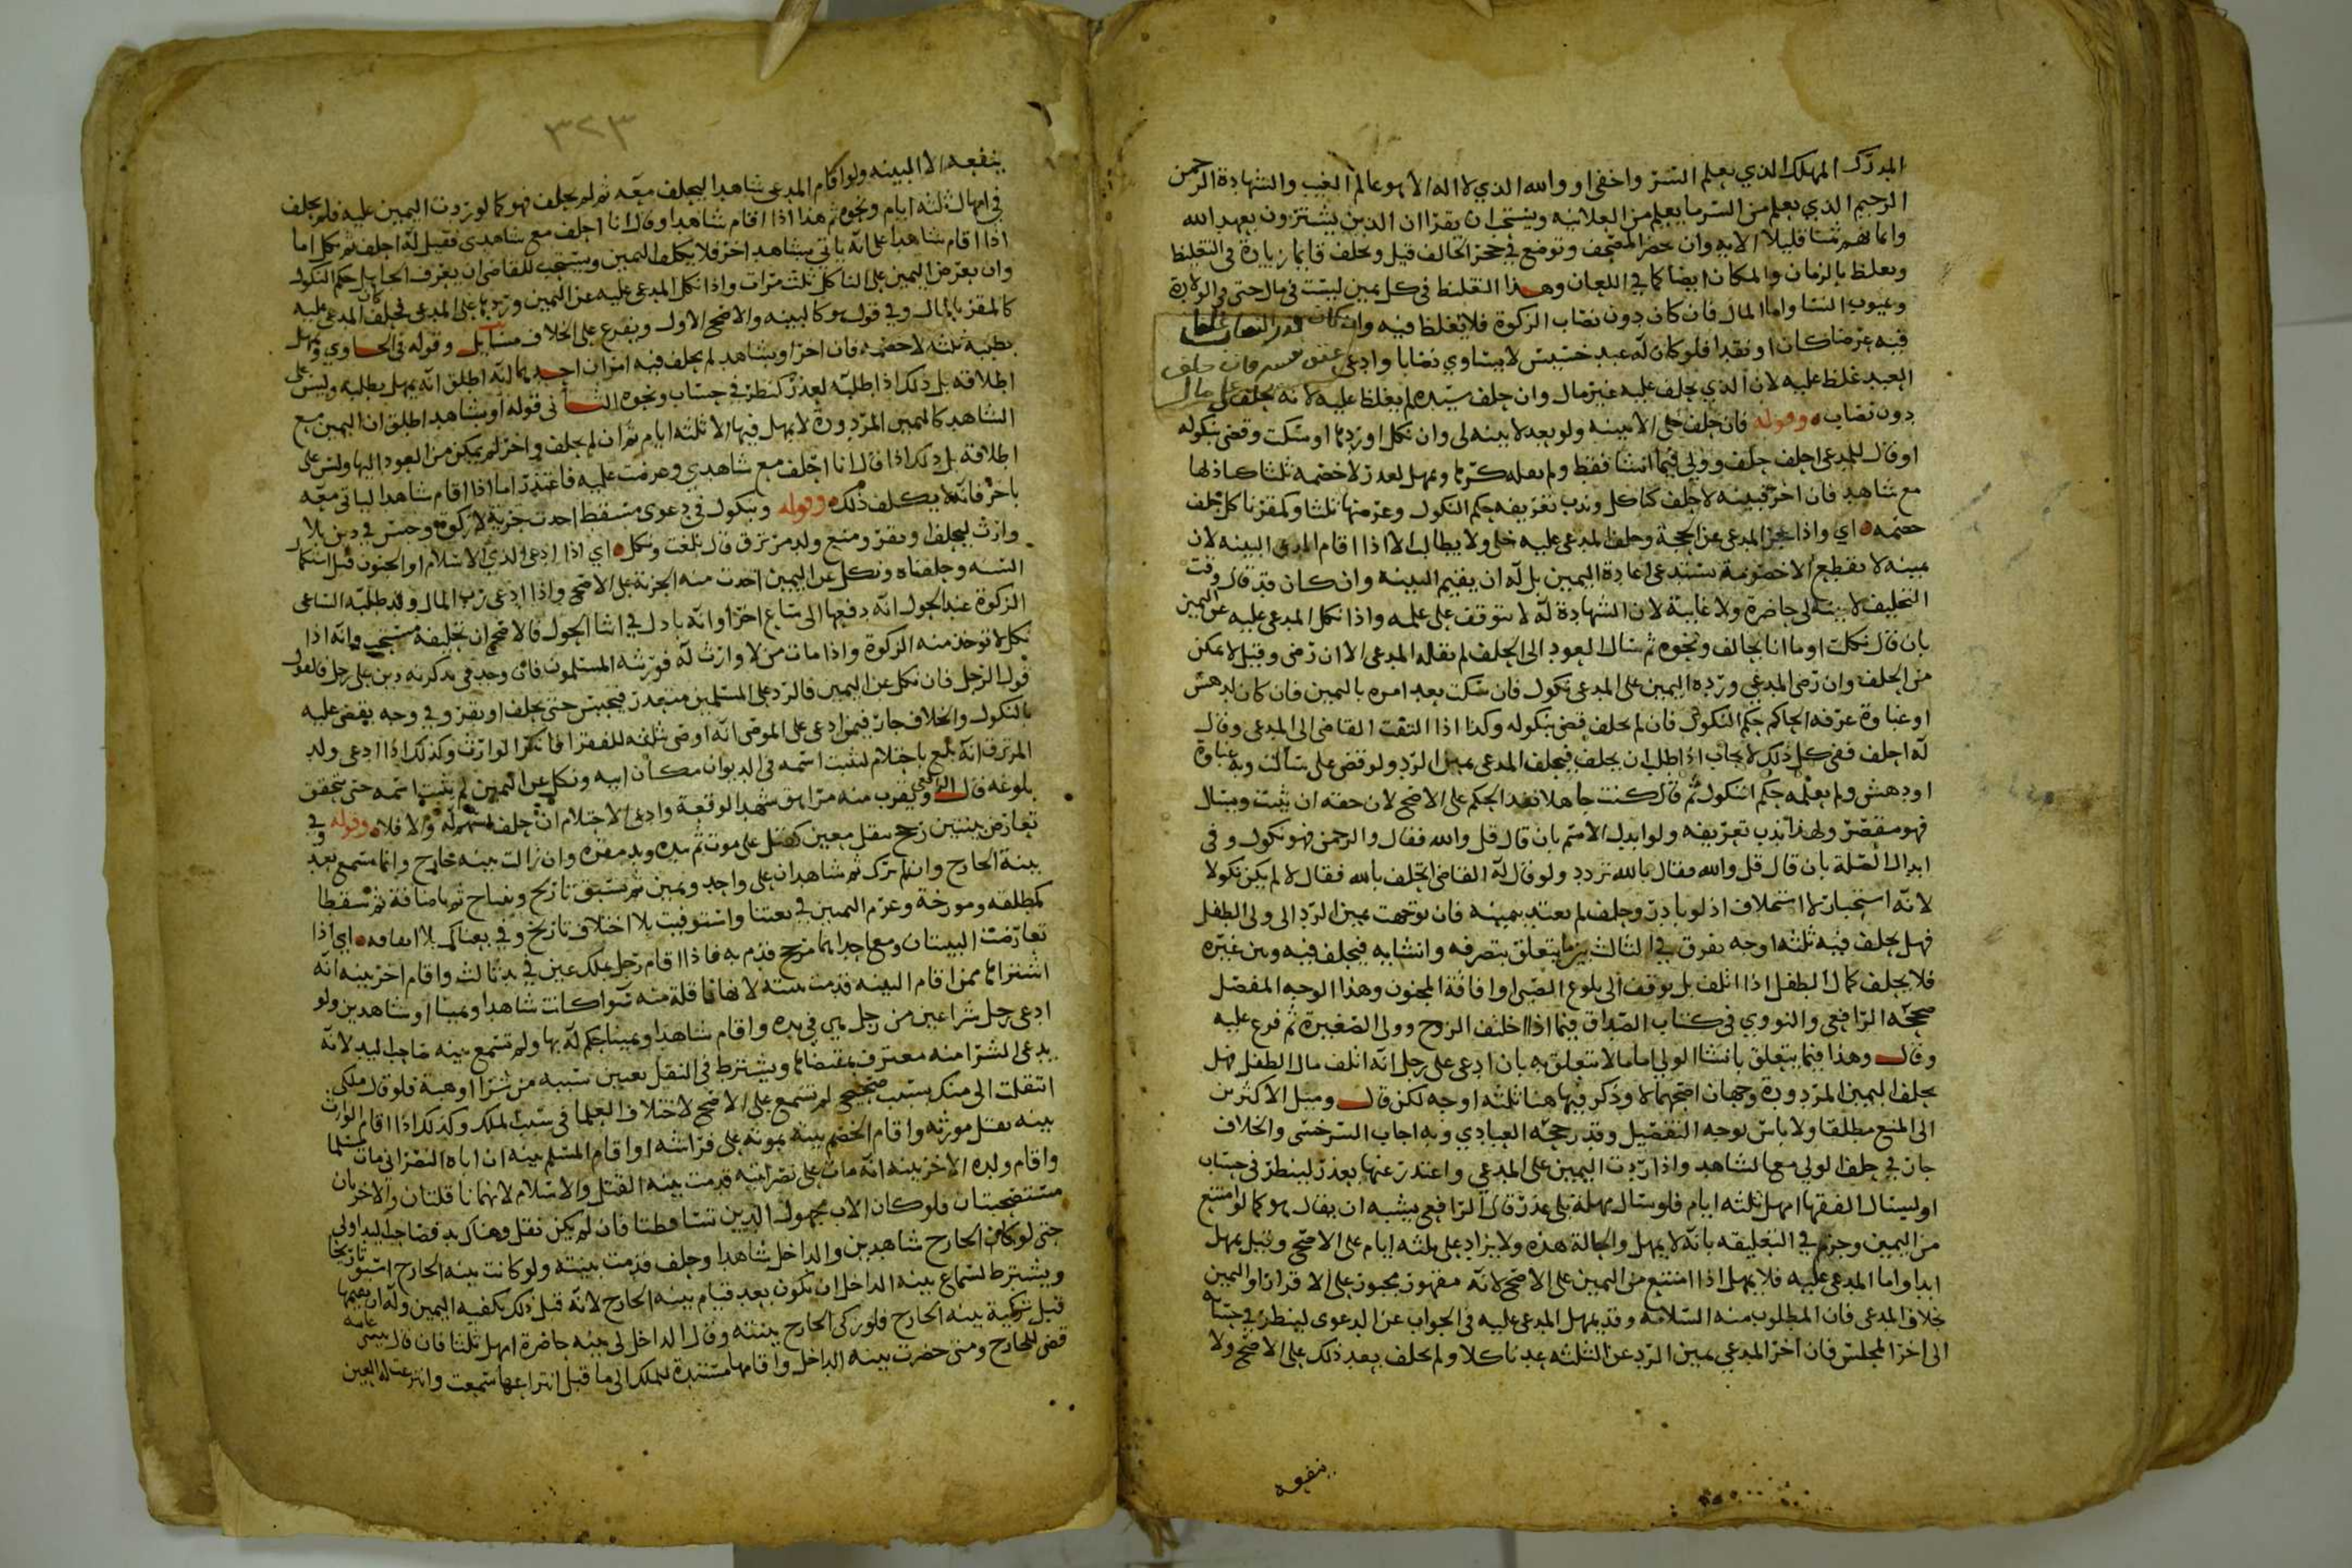 المدرك المهلك الذي يعلم السر واخفى او والله الذي لا اله الا هو عالم الغيب والشهادة الرحمن
الرحيم الذي يعلم من السر ما يعلم من العلانيه ويستحب ان يقرا ان الذين يشترون بعهد الله
وايمانهم ثمنا قليلا الايه وان يحضر المصحف وتوضع في حجر الحالف قيل ويحلف قايما زيادة في التغليظ
ويغلظ بالزمان والمكان ايضا كما في اللعان وهذا التغليظ في كل يمين ليست في مال حتى في الولادة
وعيوب النسا واما المال فان كان دون نصاب الزكوة فلا يغلظ فيه وان كان قدر النصاب غلظ
فيه عرضا كان او نقدا فلو كان له عبد خسيس لا يساوي نصابا وادعى عتق نفسه فان حلف
العبد غلظ عليه لان الذي يحلف عليه غير مال وان حلف سيده لم يغلظ عليه لانه يحلف على مال
دون نصاب وقوله فان حلف خلي لا بينه ولو بعد لا بينه لي وان نكل او ردها او سكت وقضي بنكوله
او قال للمدعي احلف حلف وولي فيما انشا فقط ولم يعد له كرها ويمهل لعذر لا خصمه ثلثا
مع شاهد فان اخر فبينه لا حلف كناكل وندب تعريفه حكم النكول وعرضها ثلثا وكمقر ناكل حلف
خصمه اي واذا عجز المدعي عن الحجة وحلف المدعى عليه خلي ولا يطالب الا اذا اقام المدعي البينه لان
يمينه لا تقطع الخصومة تستدعي اعادة اليمين بل له ان يقيم البينه وان كان قد قال وقت
التحليف لا بينه لي حاضرة ولا غايبة لان الشهادة له لا تتوقف على علمه واذا نكل المدعى عليه عن اليمين
بان قال نكلت او ما انا بحالف ونحوه ثم سال العود الى الحلف لم يقله المدعي الا ان رضي وقيل لا يمكن
من الحلف وان رضي المدعي ورده اليمين على المدعي نكول فان سكت بعد امره باليمين فان كان لدهش
او غباوة عرفه الحاكم حكم النكول فان لم يحلف قضي بنكوله وكذا اذا التفت القاضي الى المدعي وقال
له احلف ففي كل ذلك لا يجاب اذا طلب ان يحلف فيحلف المدعي يمين الرد ولو قضى على ساكت وبه غباوة
او دهش ولم يعلمه حكم النكول ثم قال كنت جاهلا نفذ الحكم على الاصح لان حقه ان يثبت ويسال
فهو مقصر ولهذا ندب تعريفه ولو ابدل الاسم بان قال قل والله فقال والرحمن فهو نكول وفي
ابدال الصلة بان قال قل والله فقال بالله تردد ولو قال له القاضي اتحلف بالله فقال لا لم يكن نكولا
لانه استخبار لا استحلاف اذ لو بادر وحلف لم يعتد بيمينه فان توجهت يمين الرد الى ولي الطفل
فهل يحلف فيه ثلثه اوجه يفرق في الثالث بين ما يتعلق بتصرفه وانشايه فيحلف فيه وبين غيره
فلا يحلف كمال الطفل اذا اتلف بل يوقف الى بلوغ الصبي او افاقة المجنون وهذا الوجه المفصل
صححه الرافعي والنووي في كتاب الصداق فيما اذا اختلف الزوج وولي الصغيرة ثم فرع عليه
وقال وهذا فيما يتعلق بانشا الولي اما ما لا يتعلق به بان ادعى على رجل انه اتلف مال الطفل فهل
يحلف اليمين المردودة وجهان اصحهما لا وذكر فيها هنا ثلثه اوجه لكن قال وميل الاكثرين
الى المنع مطلقا ولا باس بوجه التفصيل وقد رجحه العبادي وبه اجاب السرخسي والخلاف
جار في حلف الولي مع الشاهد واذا ردت اليمين على المدعي واعتذر عنها بعذر لينظر في حساب
او ليسال الفقها امهل ثلثه ايام فلو سال مهلة بلى عذر قال الرافعي يشبه ان يقال هو كما لو امتنع
من اليمين وجزم في التعليقه بانه لا يمهل والحالة هذه ولا يزاد على ثلثه ايام على الاصح وقيل يمهل
ابدا واما المدعى عليه فلا يمهل اذا امتنع من اليمين على الاصح لانه مقهور مجبور على الاقرار او اليمين
بخلاف المدعي فان المطلوب منه السلامه وقد يمهل المدعى عليه في الجواب عن الدعوى لينظر في حسابه
الى اخر المجلس فان اخر المدعي يمين الرد عن الثلثه عد ناكلا ولم يحلف بعد ذلك على الاصح ولا
ينفعه
٣٢٣
ينفعه الا البينه ولو اقام المدعي شاهدا ليحلف معه ثم لم يحلف فهو كما لو ردت اليمين عليه فلم يحلف
في امهال ثلثه ايام ونحوه ثم هذا اذا اقام شاهدا وقال انا احلف مع شاهدي فقيل له احلف ثم نكل اما
اذا اقام شاهدا على انه ياتي بشاهد اخر فلا يكلف اليمين ويستحب للقاضي ان يعرف الجاهل حكم النكول
وان يعرض اليمين على الناكل ثلث مرات واذا نكل المدعى عليه عن اليمين وردها على المدعي فحلف كان المدعى عليه
كالمقر بالمال وفي قول هو كالبينه والاصح الاول ويفرع على الخلاف مسايل وقوله في الحاوي ويمهل
بطلبه ثلثه لا خصمه فان اخر او بشاهد لم يحلف فيه امران احدهما انه اطلق انه يمهل بطلبه وليس على
اطلاقه بل ذلك اذا طلبه لعذر كنظر في حساب ونحوه الثاني قوله او بشاهد اطلق ان اليمين مع
الشاهد كاليمين المردودة لا يمهل فيها الا ثلثه ايام ثم ان لم يحلف واخر لم يمكن من العود اليها وليس على
اطلاقه بل ذلك اذا قال انا احلف مع شاهدي وعرضت عليه فاعتذر اما اذا اقام شاهدا لياتي معه
باخر فانه لا يكلف ذلك وقوله وبنكول في دعوى مسقط اخذت جزية لا زكوة وحبس في دين بلا
وارث ليحلف او يقر ومنع ولد مرتزق قال بلغت ونكل اي اذا ادعى الذمي الاسلام او الجنون قبل استكمال
السنه وحلفناه ونكل عن اليمين اخذت منه الجزية على الاصح واذا ادعى رب المال وقد طلبه الساعي
الزكوة عند الحول انه دفعها الى ساع اخر او انه بادل في اثنا الحول فالاصح ان تحليفه مستحب وانه اذا
نكل لا توخذ منه الزكوة واذا مات من لا وارث له فورثه المسلمون فان وجد في تذكرته دين على رجل فالقول
قول الرجل فان نكل عن اليمين فالرد على المسلمين متعذر فيحبس حتى يحلف او يقر وفي وجه يقضى عليه
بالنكول والخلاف جار فيمن ادعى على الموصي انه اوصى بثلثه للفقرا فانكر الوارث وكذلك اذا ادعى ولد
المرتزق انه بلغ باحتلام لثبت اسمه في الديوان مكان ابيه ونكل عن اليمين لم يثبت اسمه حتى يتحقق
بلوغه قال الرافعي ويقرب منه مراهق شهد الوقعة وادعى الاحتلام ان حلف اسهم له والا فلا وقوله وفي
تعارض بينتين رجح بنقل معين كقتل على موت ثم بيده ويد مقره وان زالت ببينه خارج وانما تسمع بعد
بينة الخارج وان لم تزك ثم شاهدان على واحد ويمين ثم بسبق تاريخ ونتاج ثم باضافة ثم سقطا
كمطلقه ومورخة وغرم الثمنين في بعتنا واستوفيت بلا اختلاف تاريخ وفي بعناكه بلا اضافه اي اذا
تعارضت البينتان ومع احداهما مرجح قدم به فاذا اقام رجل بملك عين في يد ثالث واقام اخر بينه انه
اشتراها ممن اقام البينه قدمت بينته لانها ناقلة منه سوا كانت شاهدا ويمينا او شاهدين ولو
ادعى رجل شرا عين من رجل هي في يده واقام شاهدا ويمينا حكم له بها ولم تسمع بينه صاحب اليد لانه
يدعى الشرا منه معترف بمقتضاها ويشترط في النقل تعيين سببه من شرا او هبة فلو قال ملكي
انتقلت الي منك بسبب صحيح لم تسمع على الاصح لاختلاف العلما في سبب الملك وكذلك اذا اقام الوارث
بينه بقتل مورثه واقام الخصم بينة بموته على فراشه او اقام المسلم بينه ان اباه النصراني مات مسلما
واقام ولده الاخر بينه انه مات على نصرانيته قدمت بينه القتل والاسلام لانهما ناقلتان والاخريان
مستصحبتان فلو كان الاب مجهول الدين تساقطتا فان لم يكن نقل وهناك يد فصاحب اليد اولى
حتى لو كان الخارج شاهدين والداخل شاهدا وحلف قدمت بينته ولو كانت بينه الخارج اسبق تاريخا
ويشترط لسماع بينه الداخل ان تكون بعد قيام بينه الخارج لانه قبل ذلك يكفيه اليمين وله ان يقيمها
قبل تزكية بينه الخارج فلو زكى الخارج بينته وقال الداخل لي بينه حاضرة امهل ثلثا فان قال بينتي غايبه
قضي للخارج ومتى حضرت بينه الداخل واقامها مستندة للملك الى ما قبل انتزاعها سمعت وانتزعت له العين